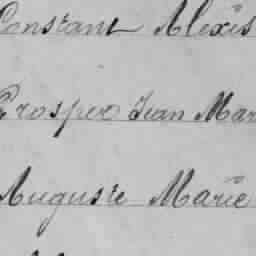 Constant Alexis
Prosper Jean Mar
Auguste Marie